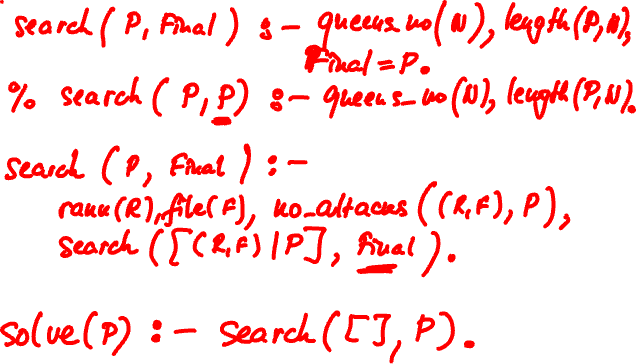 search(P, Final) :- queens_no(N), length(P,N),
Final = P.
% search(P,P) :- queens_no(N), length(P,N).
search(P, Final) :-
rank(R), file(F), no_attacks((R,F), P),
search([(R,F)|P], Final).
solve(P) :- search([], P).